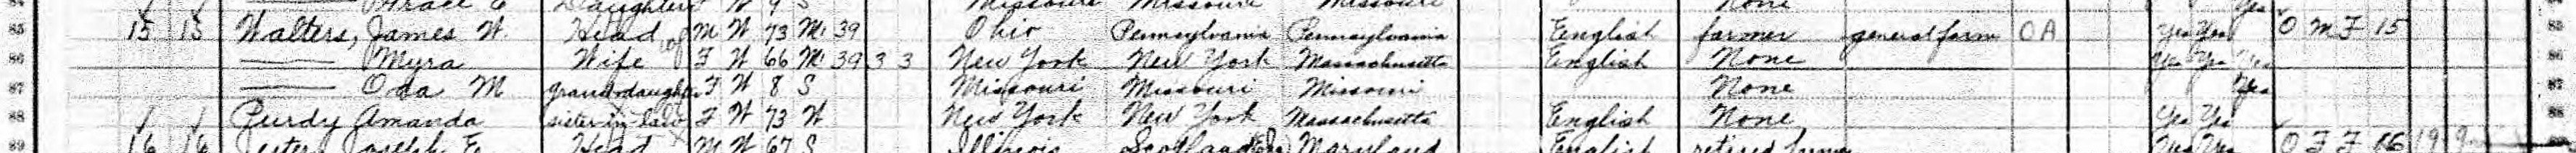 84 Grace E Daughter F W 9 S Missouri Missouri Missouri None Yes
85 15 15 Walters, James W. Head M W 73 M1 39 Ohio Pennsylvania Pennsylvania English farmer general farm O A Yes Yes O M F 15 85
86 —— Myra Wife of F W 66 M1 39 3 3 New York New York Massachusetts English None Yes Yes Yes 86
87 —— Oda M granddaughter F W 8 S Missouri Missouri Missouri None Yes 87
88 Purdy Amanda sister-in-law F W 73 W New York New York Massachusetts English None Yes Yes 88
89 16 16 Joseph E Head M W 67 S Illinois Scotland Maryland English retired Yes Yes O F F 16